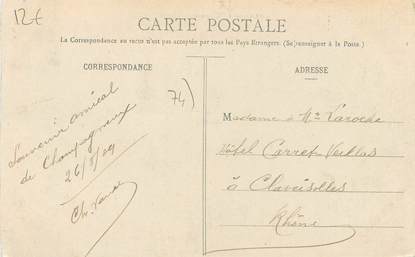 12€
CARTE POSTALE
La Correspondance au recto n'est pas acceptée par tous les Pays Etrangers. (Se renseigner à la Poste.)
CORRESPONDANCE
ADRESSE
74)
Souvenir amical
de Champigneux
26/8/09
Ch.
Madame & Mr Laroche
Hôtel Carret
à Claveisolles
Rhône